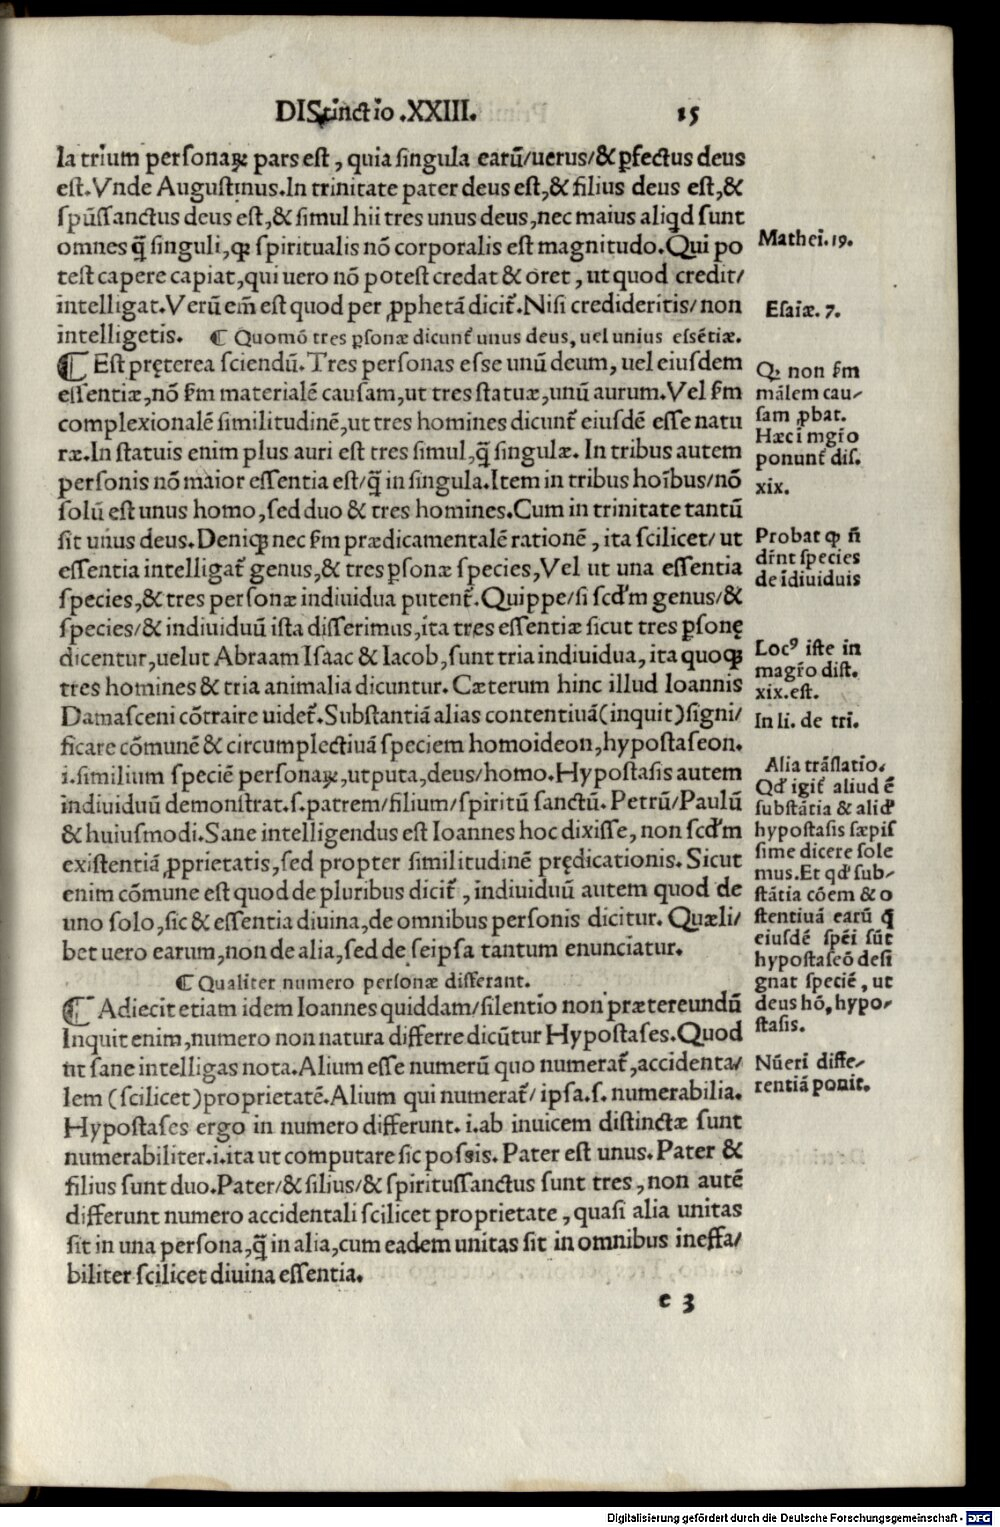 DIStinctio .XXIII. 15
la trium personaꝝ pars est, quia singula earũ/uerus/& ꝑfectus deus
est. Vnde Augustinus. In trinitate pater deus est, & filius deus est, &
spũssanctus deus est, & simul hii tres unus deus, nec maius aliqd sunt
omnes q̃ singuli, qꝫ spiritualis nõ corporalis est magnitudo. Qui po
test capere capiat, qui uero nõ potest credat & oret, ut quod credit/
intelligat. Verũ em̃ est quod per ꝓphetã dicit̃. Nisi credideritis/non
intelligetis. ¶ Quomõ tres ꝑsonæ dicunt̃ unus deus, uel unius essẽtiæ.
¶ Est pręterea sciendũ. Tres personas esse unũ deum, uel eiusdem
essentiæ, nõ ſm̃ materialẽ causam, ut tres statuæ, unũ aurum. Vel ſm̃
complexionalẽ similitudinẽ, ut tres homines dicunt̃ eiusdẽ esse natu
ræ. In statuis enim plus auri est tres simul, q̃ singulæ. In tribus autem
personis nõ maior essentia est/q̃ in singula. Item in tribus hoĩbus/nõ
solũ est unus homo, sed duo & tres homines. Cum in trinitate tantũ
sit unus deus. Deniqꝫ nec ſm̃ prædicamentalẽ rationẽ, ita scilicet/ut
essentia intelligat̃ genus, & tres ꝑsonæ species, Vel ut una essentia
species, & tres personæ indiuidua putent̃. Quippe/si scd̃m genus/&
species/& indiuiduũ ista disserimus, ita tres essentiæ sicut tres ꝑsonę
dicentur, uelut Abraam Isaac & Iacob, sunt tria indiuidua, ita quoqꝫ
tres homines & tria animalia dicuntur. Cæterum hinc illud Ioannis
Damasceni cõtraire uidet̃. Substantiã alias contentiuã (inquit) signi/
ficare cõmunẽ & circumplectiuã speciem homoideon, hypostaseon.
i. similium speciẽ personaꝝ, ut puta, deus/homo. Hypostasis autem
indiuiduũ demonstrat. s. patrem/filium/spiritũ sanctũ. Petrũ/Paulũ
& huiusmodi. Sane intelligendus est Ioannes hoc dixisse, non scd̃m
existentiã ꝓprietatis, sed propter similitudinẽ prędicationis. Sicut
enim cõmune est quod de pluribus dicit̃, indiuiduũ autem quod de
uno solo, sic & essentia diuina, de omnibus personis dicitur. Quæli/
bet uero earum, non de alia, sed de seipsa tantum enunciatur.
¶ Qualiter numero personæ differant.
¶ Adiecit etiam idem Ioannes quiddam/silentio non prætereundũ
Inquit enim, numero non natura differre dicũtur Hypostases. Quod
ut sane intelligas nota. Alium esse numerũ quo numerat̃, accidenta/
lem (scilicet) proprietatẽ. Alium qui numerat̃/ipsa. s. numerabilia.
Hypostases ergo in numero differunt. i. ab inuicem distinctæ sunt
numerabiliter. i. ita ut computare sic possis. Pater est unus. Pater &
filius sunt duo. Pater/& filius/& spiritussanctus sunt tres, non autẽ
differunt numero accidentali scilicet proprietate, quasi alia unitas
sit in una persona, q̃ in alia, cum eadem unitas sit in omnibus ineffa/
biliter scilicet diuina essentia.
e 3
Mathei. 19.
Esaiæ. 7.
Qꝫ non ſm̃
mãlem cau/
sam ꝓbat.
Hæc ĩ mgr̃o
ponunt̃ dis.
xix.
Probat qꝫ ñ
dr̃nt species
de ĩdiuiduis
Locꝰ iste in
magr̃o dist.
xix. est.
In li. de tri.
Alia trãslatio.
Qd̃ igit̃ aliud ẽ
substãtia & alid̃
hypostasis sæpis
sime dicere sole
mus. Et qd̃ sub/
stãtia cõem & o
stentiuã earũ q̃
eiusdẽ spẽi sũt
hypostaseõ desi
gnat speciẽ, ut
deus hõ, hypo/
stasis.
Nũeri diffe/
rentiã ponit.
Digitalisierung gefördert durch die Deutsche Forschungsgemeinschaft - DFG